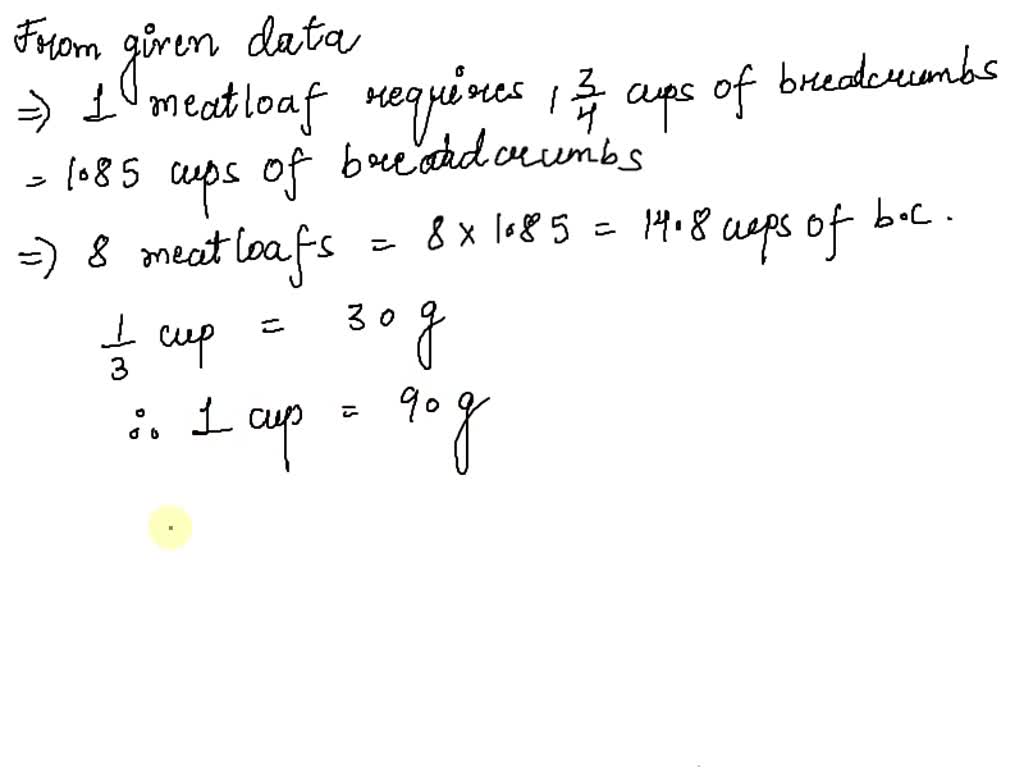 From given data
⇒ 1 meatloaf requires 1 3/4 cups of breadcrumbs
= 1.85 cups of breadcrumbs
⇒ 8 meatloafs = 8 × 1.85 = 14.8 cups of b.c.
1/3 cup = 30 g
∴ 1 cup = 90 g